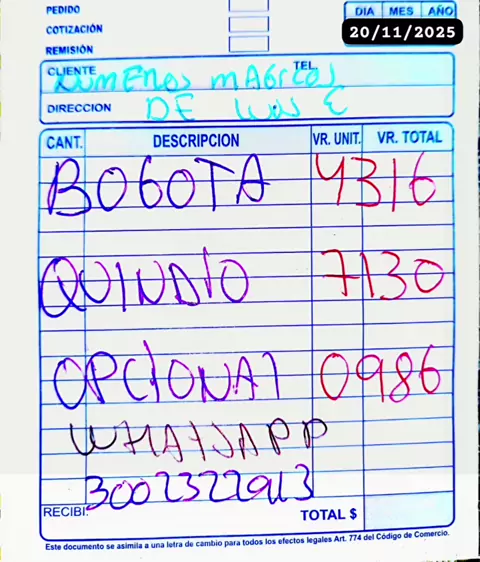 PEDIDO
COTIZACIÓN
REMISIÓN
DIA MES AÑO
20/11/2025
CLIENTE NUMEROS MAGICOS TEL.
DIRECCION DE LUIS E
CANT. DESCRIPCION VR. UNIT. VR. TOTAL
BOGOTA 4316
QUINDIO 7130
OPCIONAL 0986
WHATSAPP
3002322913
RECIBI:
TOTAL $
Este documento se asimila a una letra de cambio para todos los efectos legales Art. 774 del Código de Comercio.